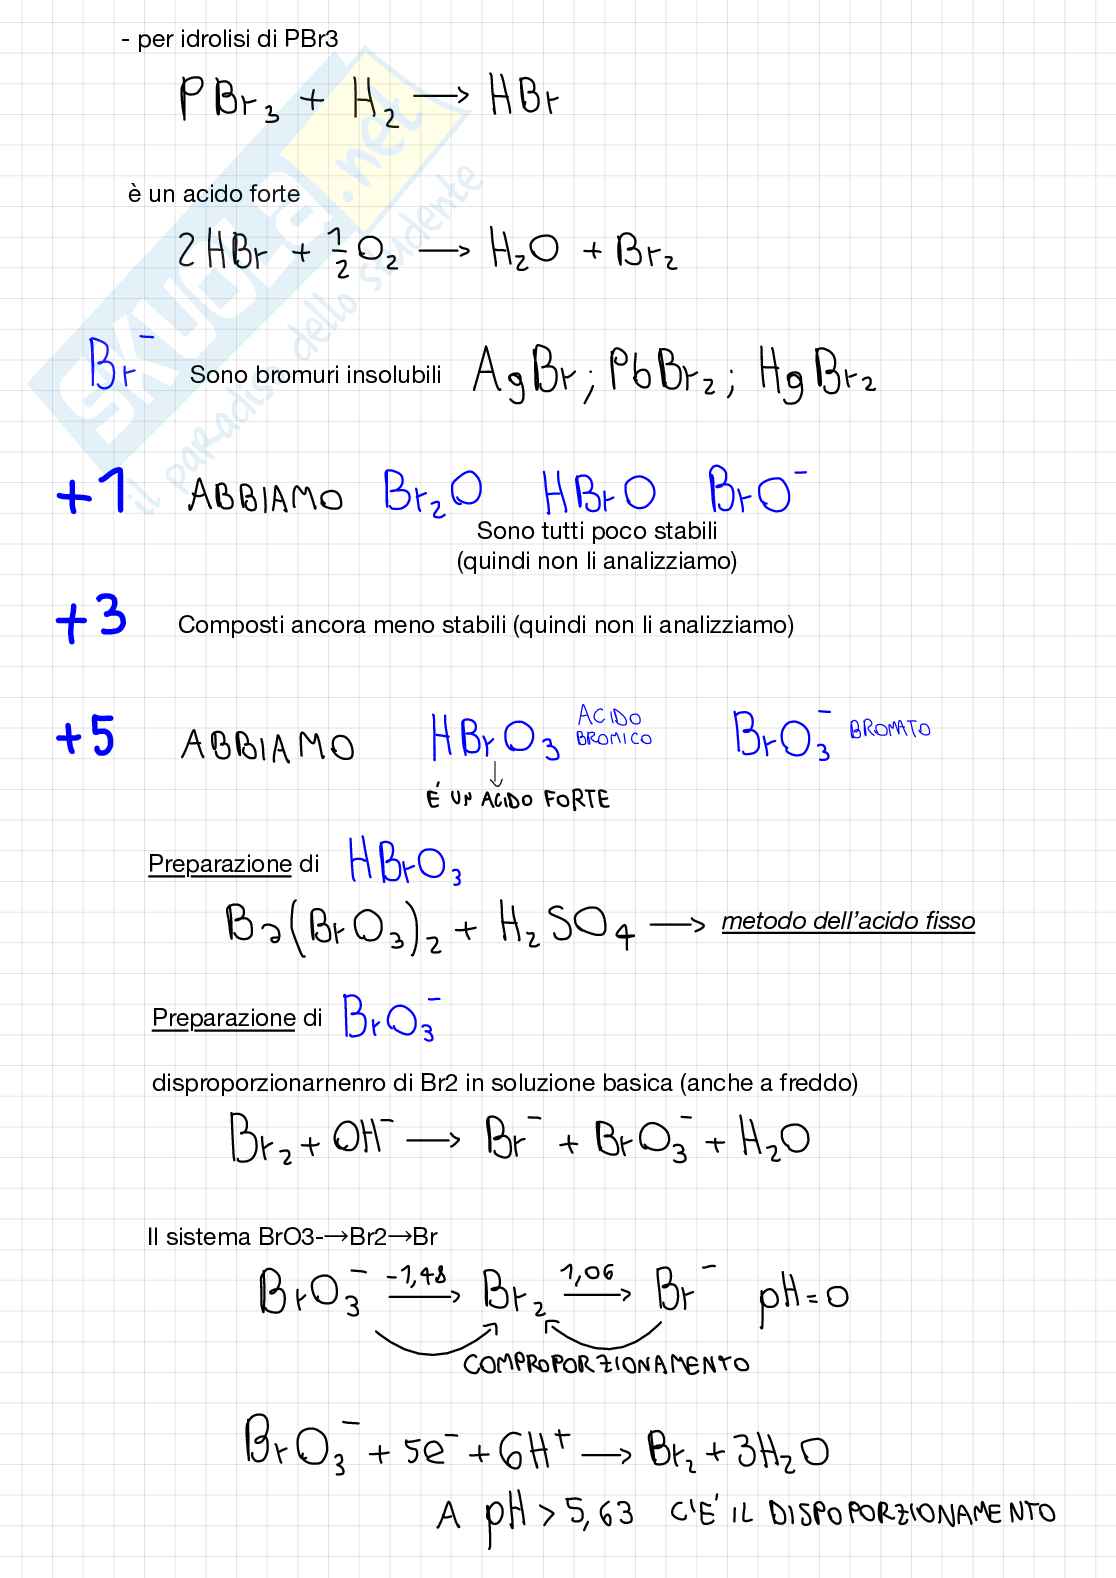 - per idrolisi di PBr3
PBr₃ + H₂ → HBr
è un acido forte
2HBr + 1/2 O₂ → H₂O + Br₂
Br⁻ Sono bromuri insolubili AgBr; PbBr₂; HgBr₂
+1 ABBIAMO Br₂O HBrO BrO⁻
Sono tutti poco stabili
(quindi non li analizziamo)
+3 Composti ancora meno stabili (quindi non li analizziamo)
+5 ABBIAMO HBrO₃ ACIDO BROMICO BrO₃⁻ BROMATO
↓
É UN ACIDO FORTE
Preparazione di HBrO₃
Ba(BrO₃)₂ + H₂SO₄ → metodo dell'acido fisso
Preparazione di BrO₃⁻
disproporzionarnenro di Br2 in soluzione basica (anche a freddo)
Br₂ + OH⁻ → Br⁻ + BrO₃⁻ + H₂O
Il sistema BrO3-→Br2→Br
BrO₃⁻ -1,48→ Br₂ 1,06→ Br⁻ pH=0
COMPROPORZIONAMENTO
BrO₃⁻ + 5e⁻ + 6H⁺ → Br₂ + 3H₂O
A pH > 5,63 C'É IL DISPOPORZIONAMENTO
SKUOLA.net
il paradiso dello studente